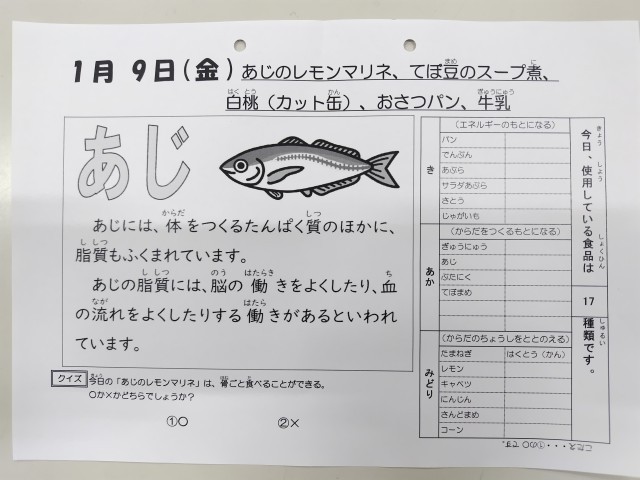 1月 9日(金)あじのレモンマリネ、てぼ豆のスープ煮、
白桃(カット缶)、おさつパン、牛乳
あじ
あじには、体をつくるたんぱく質のほかに、
脂質もふくまれています。
あじの脂質には、脳の働きをよくしたり、血
の流れをよくしたりする働きがあるといわれ
ています。
クイズ
今日の「あじのレモンマリネ」は、骨ごと食べることができる。
○か×かどちらでしょうか?
①○ ②×
き
(エネルギーのもとになる)
パン
でんぷん
あぶら
サラダあぶら
さとう
じゃがいも
あか
(からだをつくるもとになる)
ぎゅうにゅう
あじ
ぶたにく
てぼまめ
みどり
(からだのちょうしをととのえる)
たまねぎ はくとう(かん)
レモン
キャベツ
にんじん
さんどまめ
コーン
今日、使用している食品は
17
種類です。
こたえ・・・①の○です。